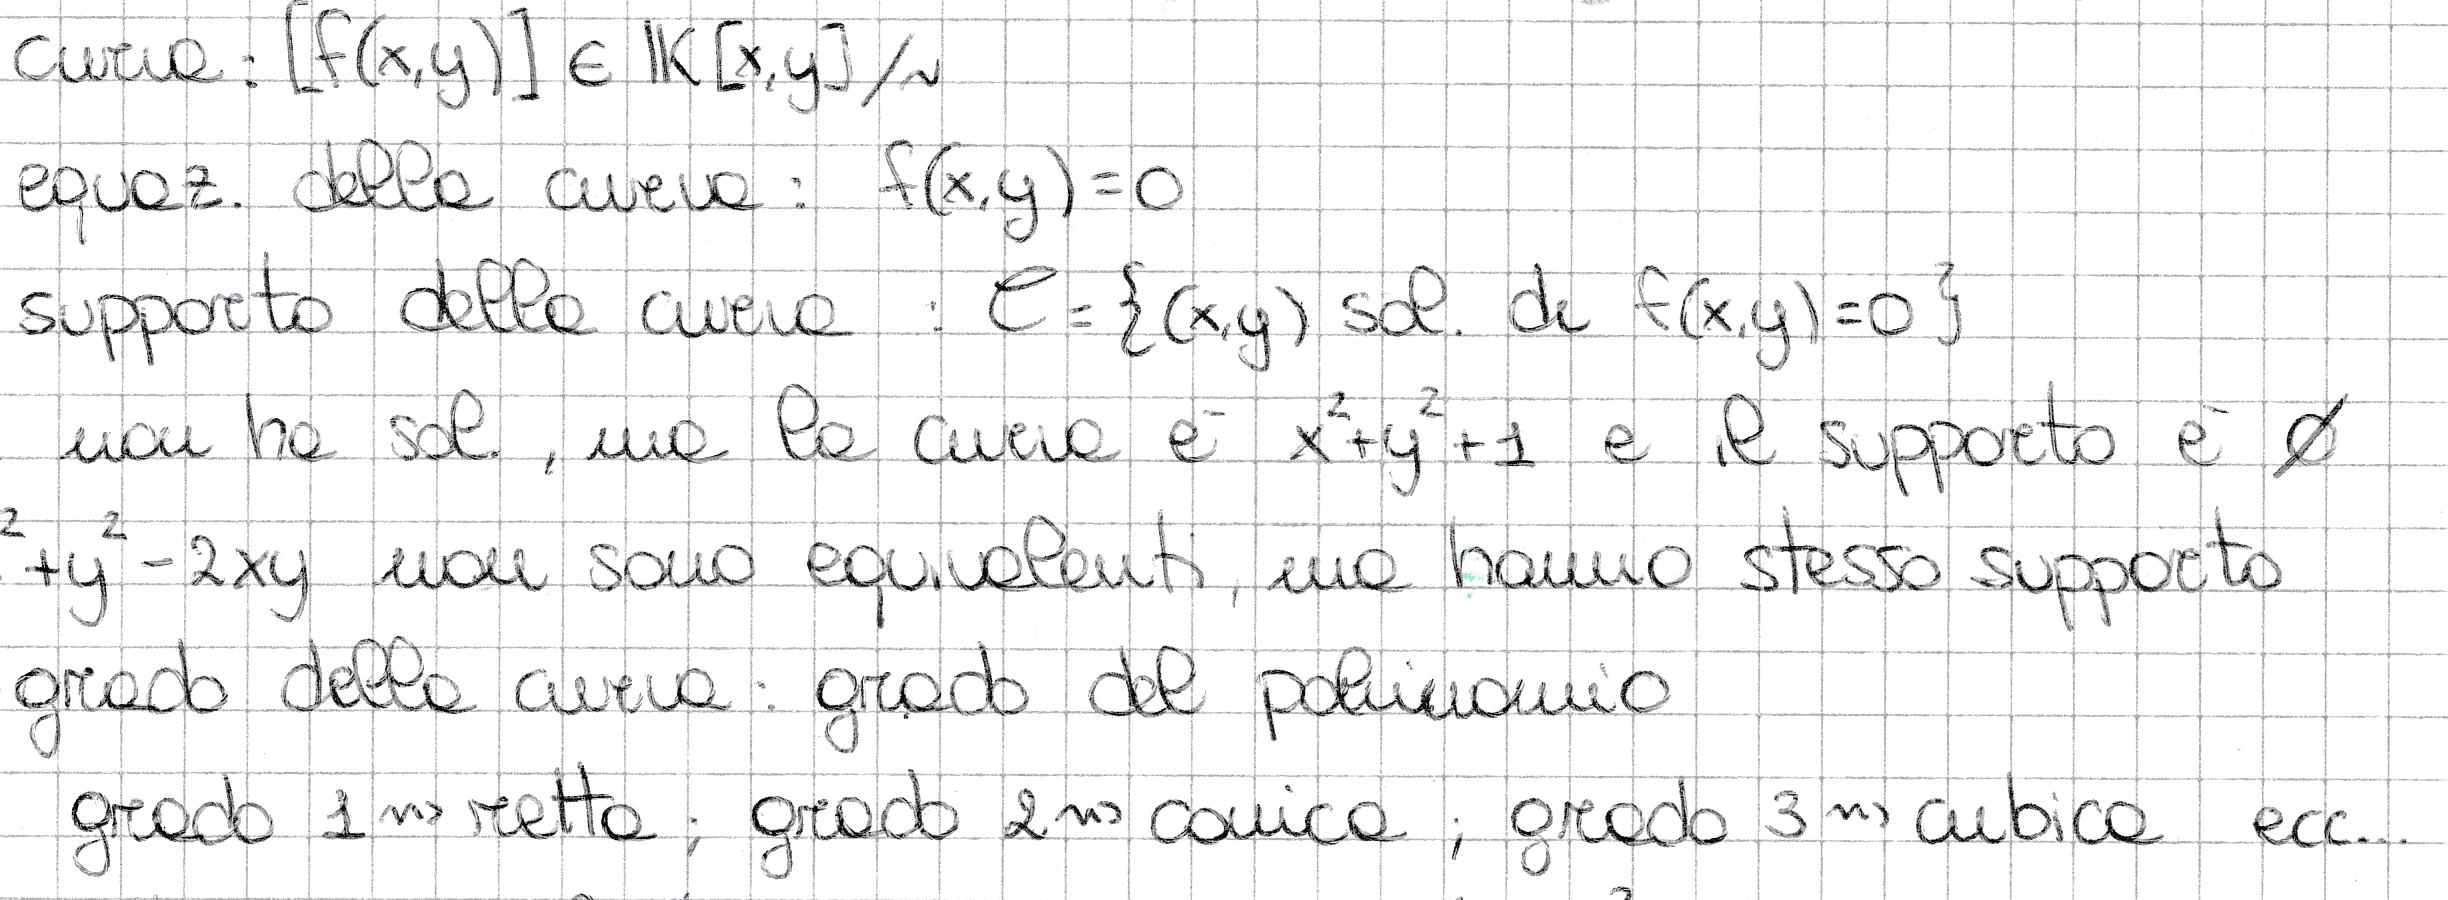 curva: [f(x,y)] ∈ 𝕂[x,y]/~
equaz. della curva: f(x,y)=0
supporto della curva : C = {(x,y) sol. di f(x,y)=0}
non ha sol., ma la curva è x²+y²+1 e il supporto è ∅
²+y²-2xy non sono equivalenti, ma hanno stesso supporto
grado della curva: grado del polinomio
grado 1 ⇝ retta; grado 2 ⇝ conica; grado 3 ⇝ cubica ecc...